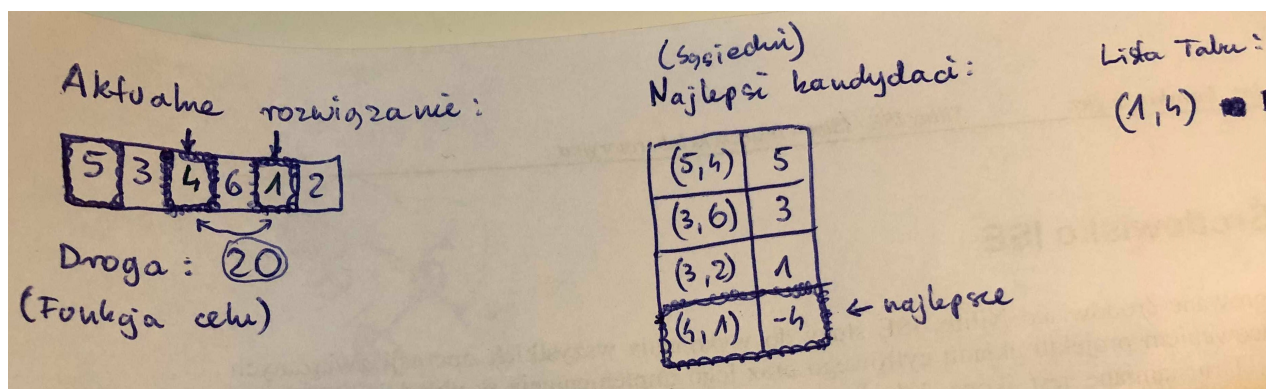 Aktualne rozwiązanie:
5 3 4 6 1 2
Droga: 20
(Funkcja celu)
(Sąsiedni)
Najlepsi kandydaci:
(5,4) 5
(3,6) 3
(3,2) 1
(4,1) -4
← najlepsze
Lista Tabu:
(1,4)